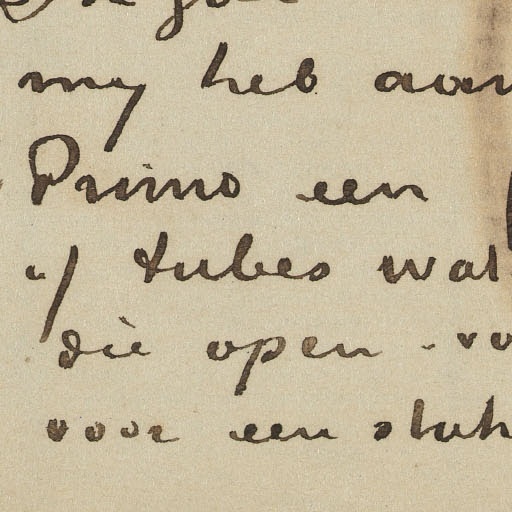 my heb aan
Primo een
of tubes wat
die open vo
voor een stuk